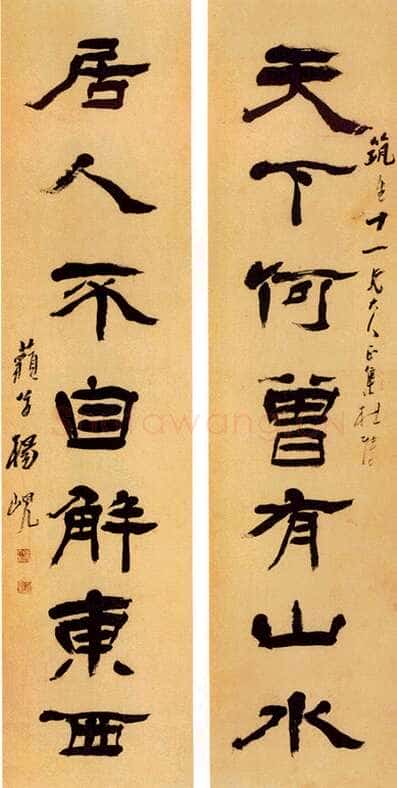 天下何曾有山水
筑生十一兄大人正集杜詩
居人不自解東西
藐翁楊峴